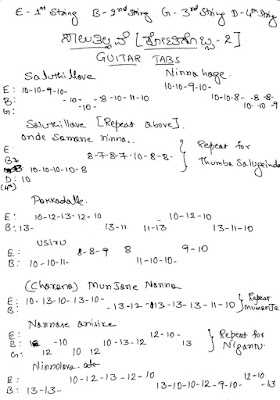 E - 1st String B - 2nd String G - 3rd String D - 4th String
ಸಾಲುತಿಲ್ಲವೆ [ಕೋಟಿಗೊಬ್ಬ - 2]
GUITAR TABS
Saluthillave Ninna hage
E: 10-10-9-10- 10-10-9-10-
B: -10- -8-10-11-10 10-10-8 -8-8-8
G: -10- 10-10-9
Saluthillave [Repeat above].
onde samane ninna..
E: 8-7-8-7-10-8-8- } Repeat for
B: 10-10-10-10-8 Thumba Salugeinda
D: 10
(4th)
Pakkadalle.
E: 10-12-13-12-10 -10-12-10
B: 13- 13-11 11-13 13-11-10
usiru
E: 8-8-9 8 9-10
B: 10-10-11- 11-10-10-
(Charana) MunJane Nanna
E: 10-13-10-13-10- } Repeat
B: -13-12-13-13-13-11-10
Nannane arisike
E: 12-10- } Repeat for
B: -10 10-13-12-10 13 Niganu
G: 12 10 12
E: 10-12-13-12-10 12-10
B: 13-13- 13-10-10-12-9-10- -13